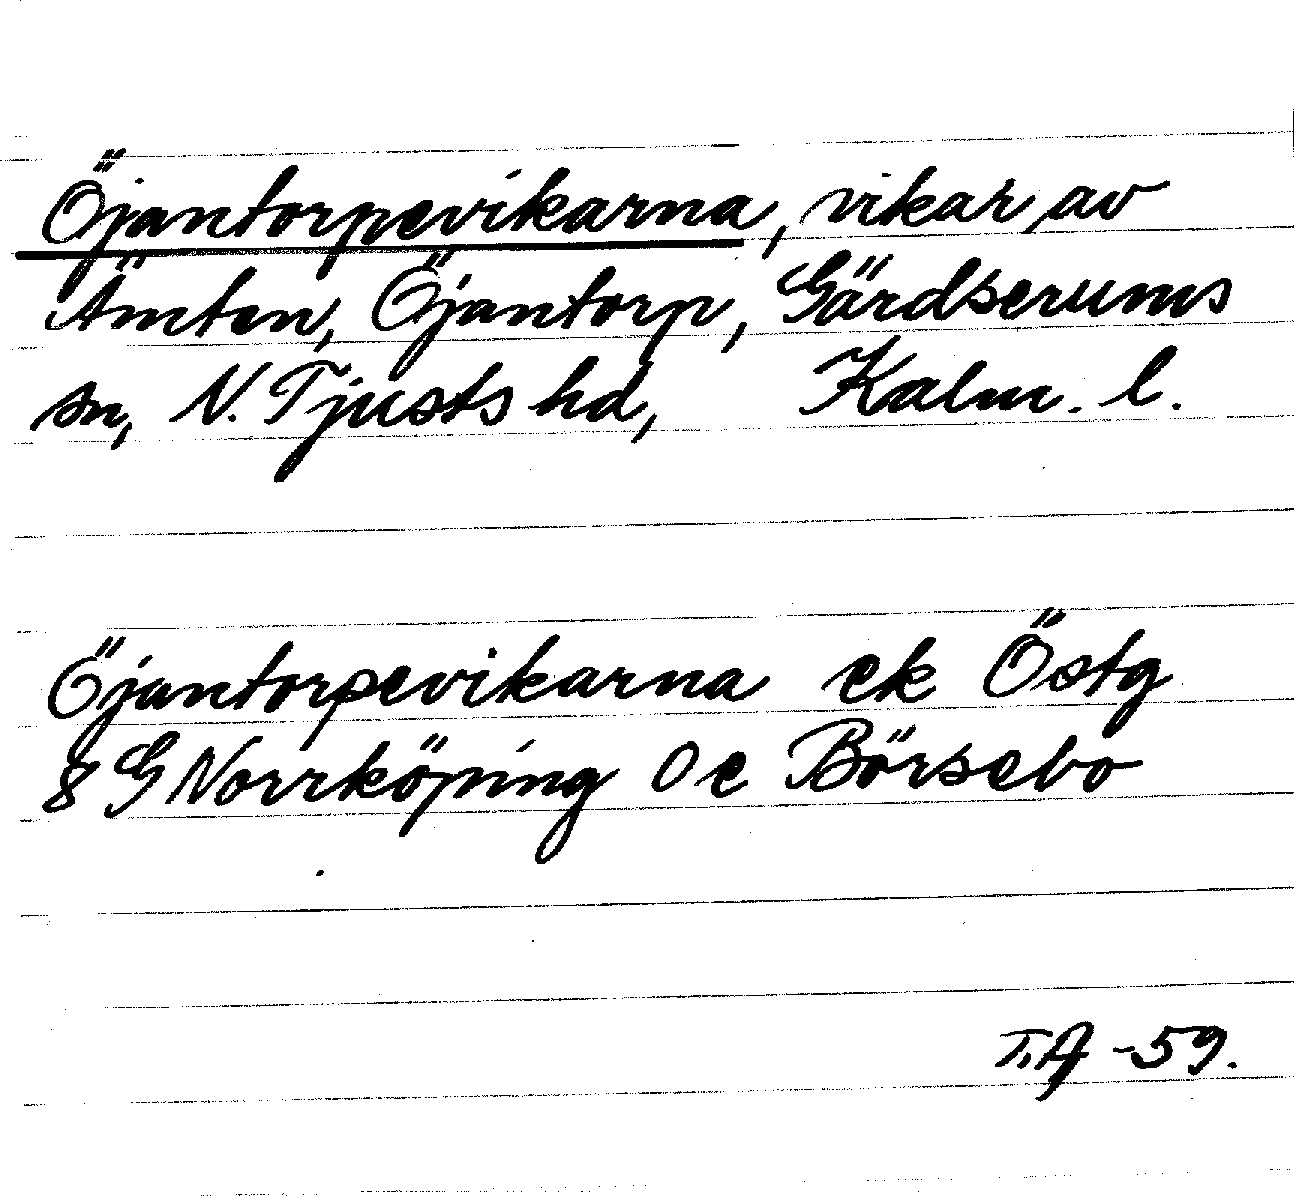 Öjantorpevikarna, vikar av
Ämten, Öjantorp, Gärdserums
sn, N. Tjusts hd, Kalm. l.
Öjantorpevikarna ek Östg
8 G Norrköping O e Börsebo
T.A -59.